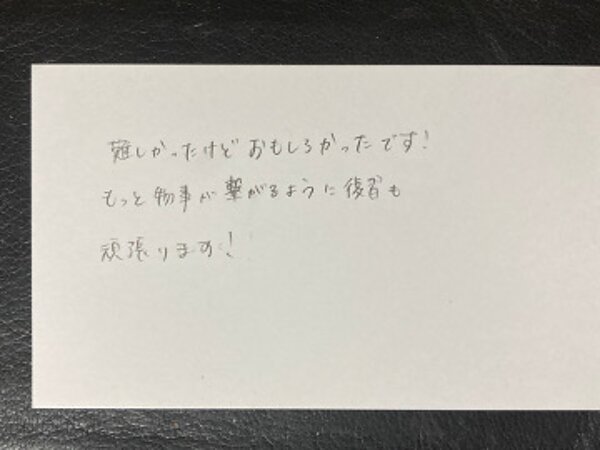 難しかったけどおもしろかったです!
もっと物事が繋がるように復習も
頑張ります!